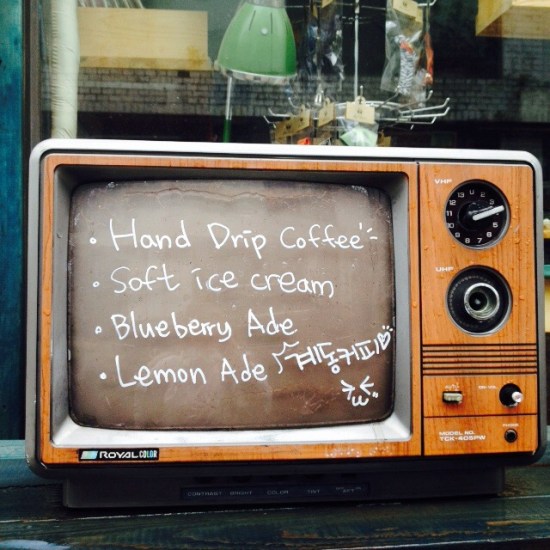 • Hand Drip Coffee
• Soft ice cream
• Blueberry Ade
• Lemon Ade
계동커피♡
>ω<
ROYAL COLOR
VHF
UHF
MODEL NO.
TCK-405PW
CONTRAST BRIGHT COLOR TINT